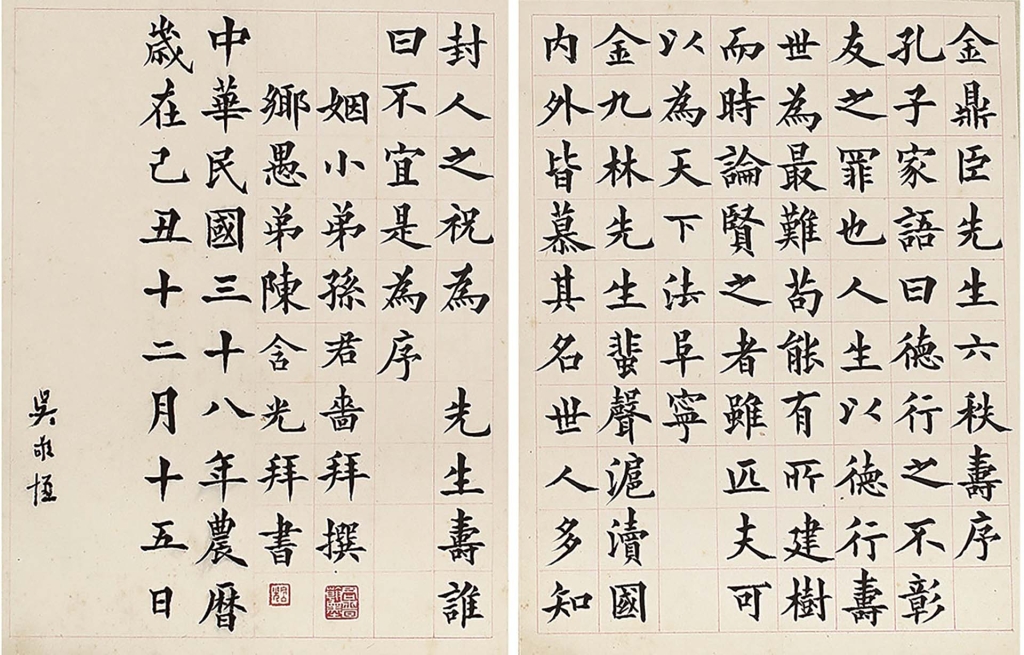 金鼎臣先生六秩壽序
孔子家語曰德行之不彰
友之罪也人生以德行壽
世為最難苟能有所建樹
而時論賢之者雖匹夫可
以為天下法阜寧
金九林先生蜚聲滬瀆國
內外皆慕其名世人多知
封人之祝為先生壽誰
曰不宜是為序
姻小弟孫君嗇拜撰
鄉愚弟陳含光拜書
中華民國三十八年農曆
歲在己丑十二月十五日
吳敬恆